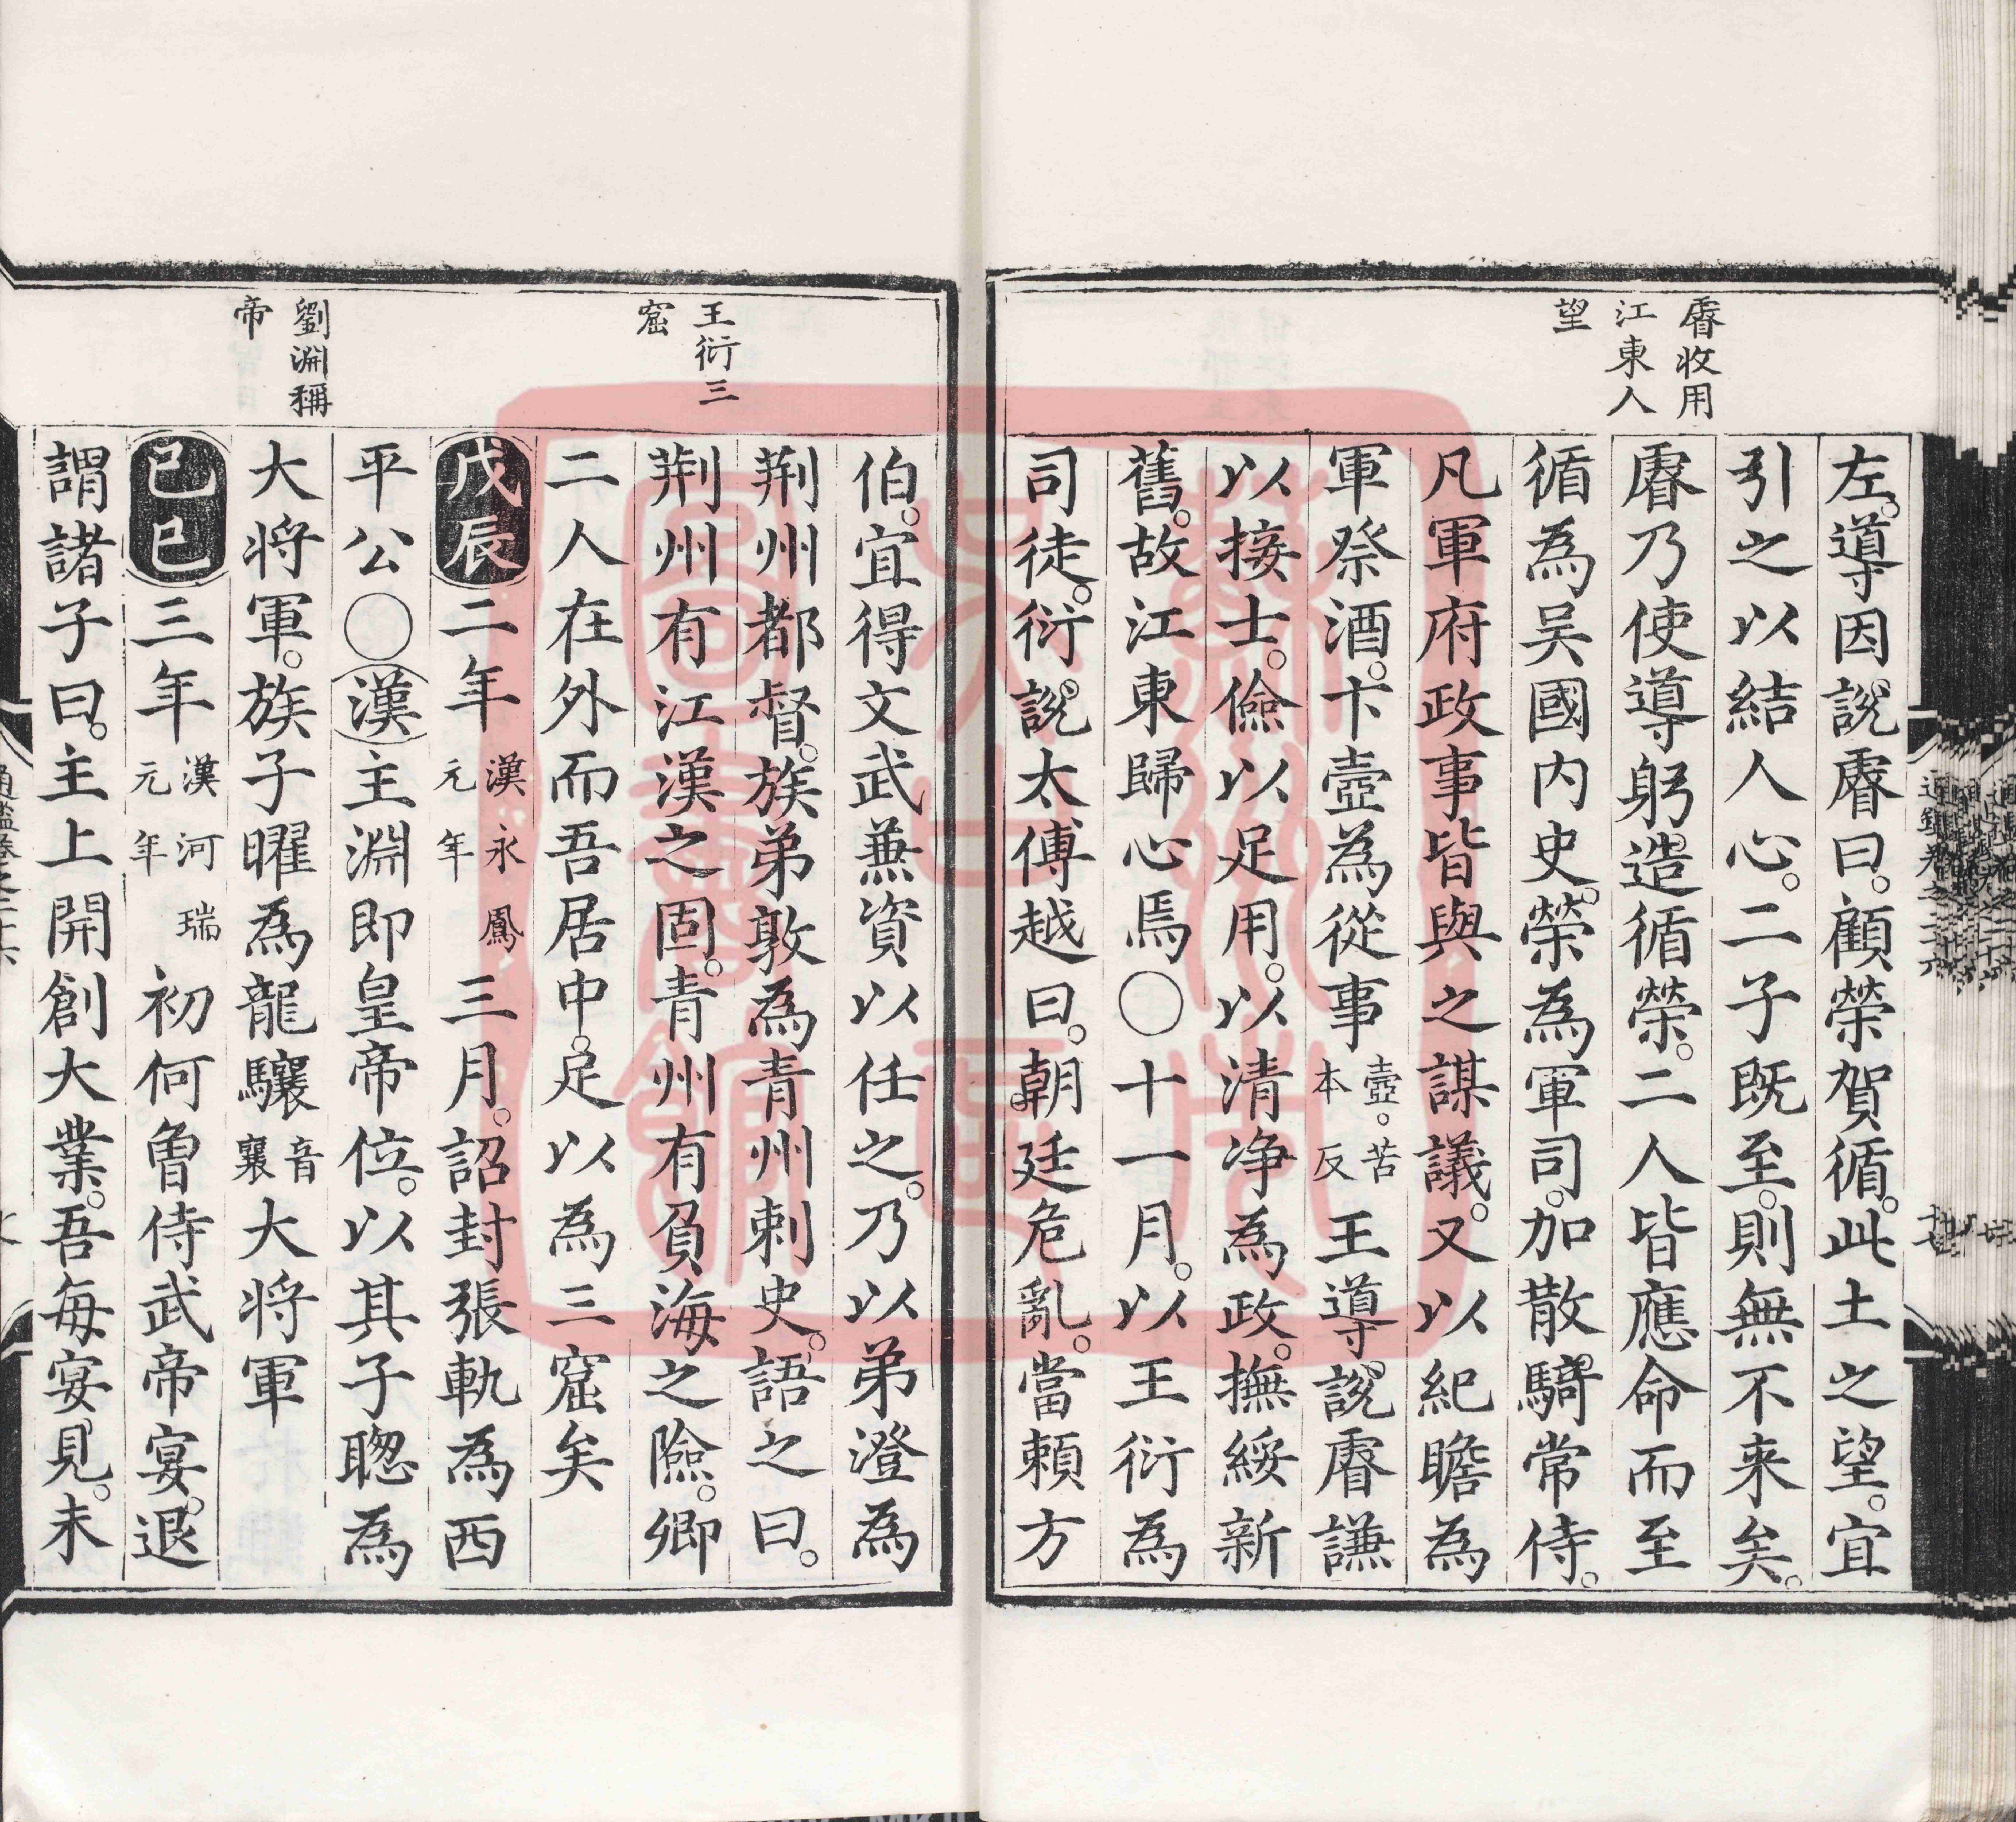 睿收用
江東人
望
左。導因說睿曰。顧榮賀循。此土之望。宜
引之以結人心。二子既至。則無不来矣。
睿乃使導躬造循榮。二人皆應命而至
循為吳國内史。榮為軍司。加散騎常侍。
凡軍府政事皆與之謀議。又以紀瞻為
軍祭酒。卞壼為從事壼。苦本反王導說睿謙
以接士。儉以足用。以清净為政。撫綏新
舊。故江東歸心焉〇十一月。以王衍為
司徒。衍說太傅越曰。朝廷危亂。當頼方
王衍三
窟
劉淵稱
帝
伯。宜得文武兼資以任之。乃以弟澄為
荆州都督。族弟敦為青州刺史。語之曰。
荆州有江漢之固。青州有負海之險。卿
二人在外而吾居中。足以為三窟矣
戊辰二年漢永鳳元年三月。詔封張軌為西
平公〇漢主淵即皇帝位。以其子聦為
大将軍。族子曜為龍驤音襄大将軍
己巳三年漢河瑞元年初何曾侍武帝宴。退
謂諸子曰。主上開創大業。吾每宴見。未